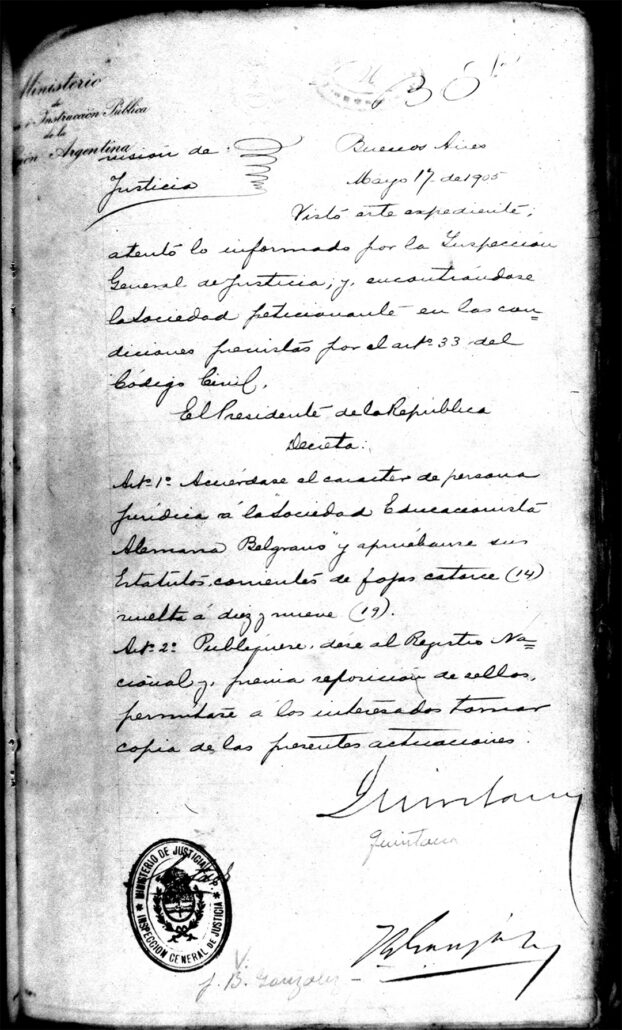 Ministerio
de
Instrucción Pública
de la
Argentina
de
Justicia
Buenos Aires
Mayo 17 de 1905
Visto este expediente,
atento lo informado por la Inspección
General de Justicia; y, encontrándose
la Sociedad peticionante en las con=
diciones previstas por el artº 33 del
Código Civil,
El Presidente de la República
Decreta:
Artº 1º Acuérdase el carácter de persona
jurídica á la Sociedad Educacionista
Alemana Belgrano" y apruébanse sus
Estatutos corrientes de fojas catorce (14)
vuelta á diez y nueve (19).
Artº 2º Publíquese, dése al Registro Na=
cional y, previa reposición de sellos,
permítase á los interesados tomar
copia de las presentes actuaciones.
Quintana
Quintana
MINISTERIO DE JUSTICIA É I.P.
INSPECCIÓN GENERAL DE JUSTICIA
J V González
J. V. González